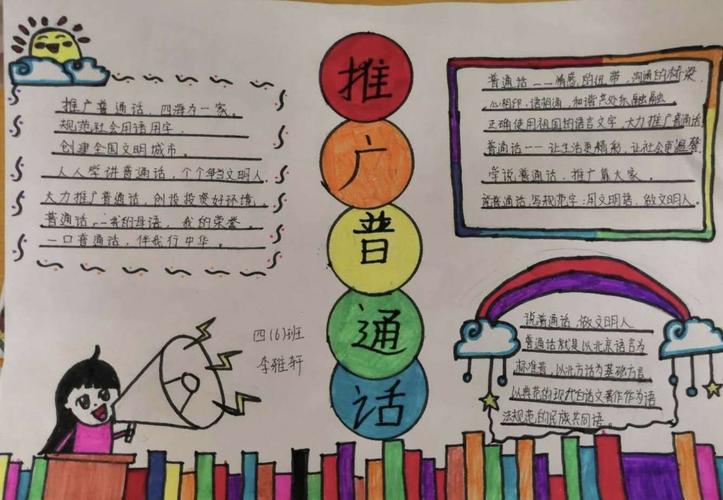 推广普通话
推广普通话，四海为一家。
规范社会用语用字
创建全国文明城市。
人人学讲普通话，个个争当文明人
大力推广普通话，创设投资好环境。
普通话——我的母语，我的荣誉。
一口普通话，伴我行中华。
普通话——情感的纽带，沟通的桥梁
心相印，语相通，和谐共处乐融融
正确使用祖国的语言文字，大力推广普通话
普通话——让生活更精彩，让社会更温馨
学说普通话，推广靠大家。
普通话，写规范字：用文明语，做文明人。
四(6)班
李雅轩
说普通话，做文明人
普通话就是以北京语言为
标准音，以北方话为基础方言
以典范的现代白话文著作作为语
法规范的民族共同语。